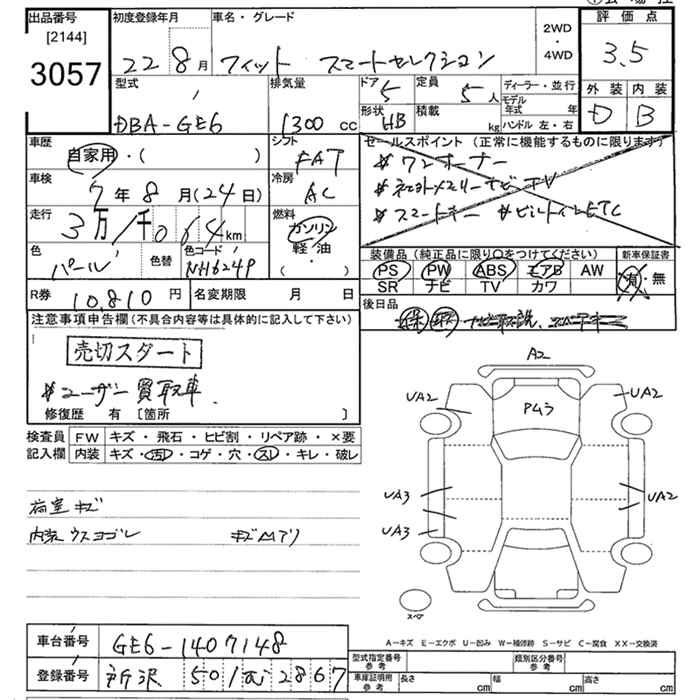 出品番号 初度登録年月 車名・グレード 2WD・4WD 評価点
[2144]
3057 22 8月 フィット スマートセレクション 3.5
型式 排気量 ドア 5 定員 5人 ディーラー・並行 外装 内装
DBA-GE6 1300cc 形状 HB 積載 kg モデル年式 年 D B
ハンドル 左・右
車歴 自家用・( ) シフト FAT セールスポイント(正常に機能するものに限ります)
車検 7年8月(24日) 冷房 AC #ワンオーナー
#ネットメモリーナビTV
走行 3万/千 km 燃料 ガソリン #スマートキー #ビルトインETC
色 パール 色替 色コード NH624P 軽・油・( )
装備品(純正品に限り○をつけてください) 新車保証書
PS PW ABS エアB AW 有・無
SR ナビ TV カワ
R券 10,810円 名変期限 月 日
後日品
注意事項申告欄(不具合内容等は具体的に記入して下さい)
売切スタート
#ユーザー買取車
修復歴 有[箇所 ]
検査員 FW キズ・飛石・ヒビ割・リペア跡・×要
記入欄 内装 キズ・汚レ・コゲ・穴・スレ・キレ・破レ
荷室キズ
内装ウスヨゴレ
A2
UA2 UA2
UA3 UA2
UA3
スペア
A-キズ E-エクボ U-凹み W-補修跡 S-サビ C-腐食 XX-交換済
車台番号 GE6-1407148
登録番号 所沢 501 む 2867
型式指定番号 参考 類別区分番号 参考
車庫証明用 参考 長さ cm 幅 cm 高さ cm